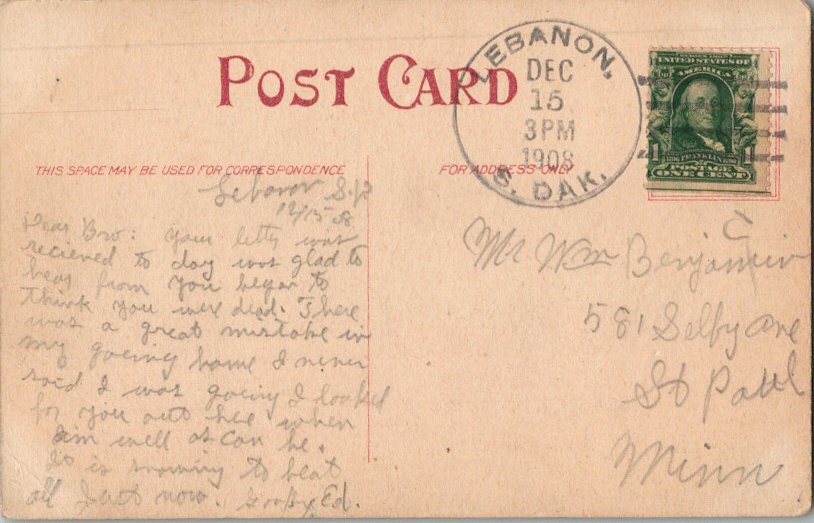 POST CARD
LEBANON,
DEC
15
3PM
1908
S. DAK.
SERIES 1902
UNITED STATES OF
AMERICA
1 FRANKLIN 1
POSTAGE
ONE CENT
THIS SPACE MAY BE USED FOR CORRESPONDENCE
FOR ADDRESS ONLY
Lebanon S.D
12/15-08
Dear Bro: Your letty was
recieved to day was glad to
hear from you began to
think you were dead. There
was a great mistake in
my goeing home I never
said I was goeing I looked
for you out hee when
Iim well as can be.
It is snowing to beat
all Just now. Ed.
Mr Wm Benjamin
581 Selby Ave
St Paul
Minn